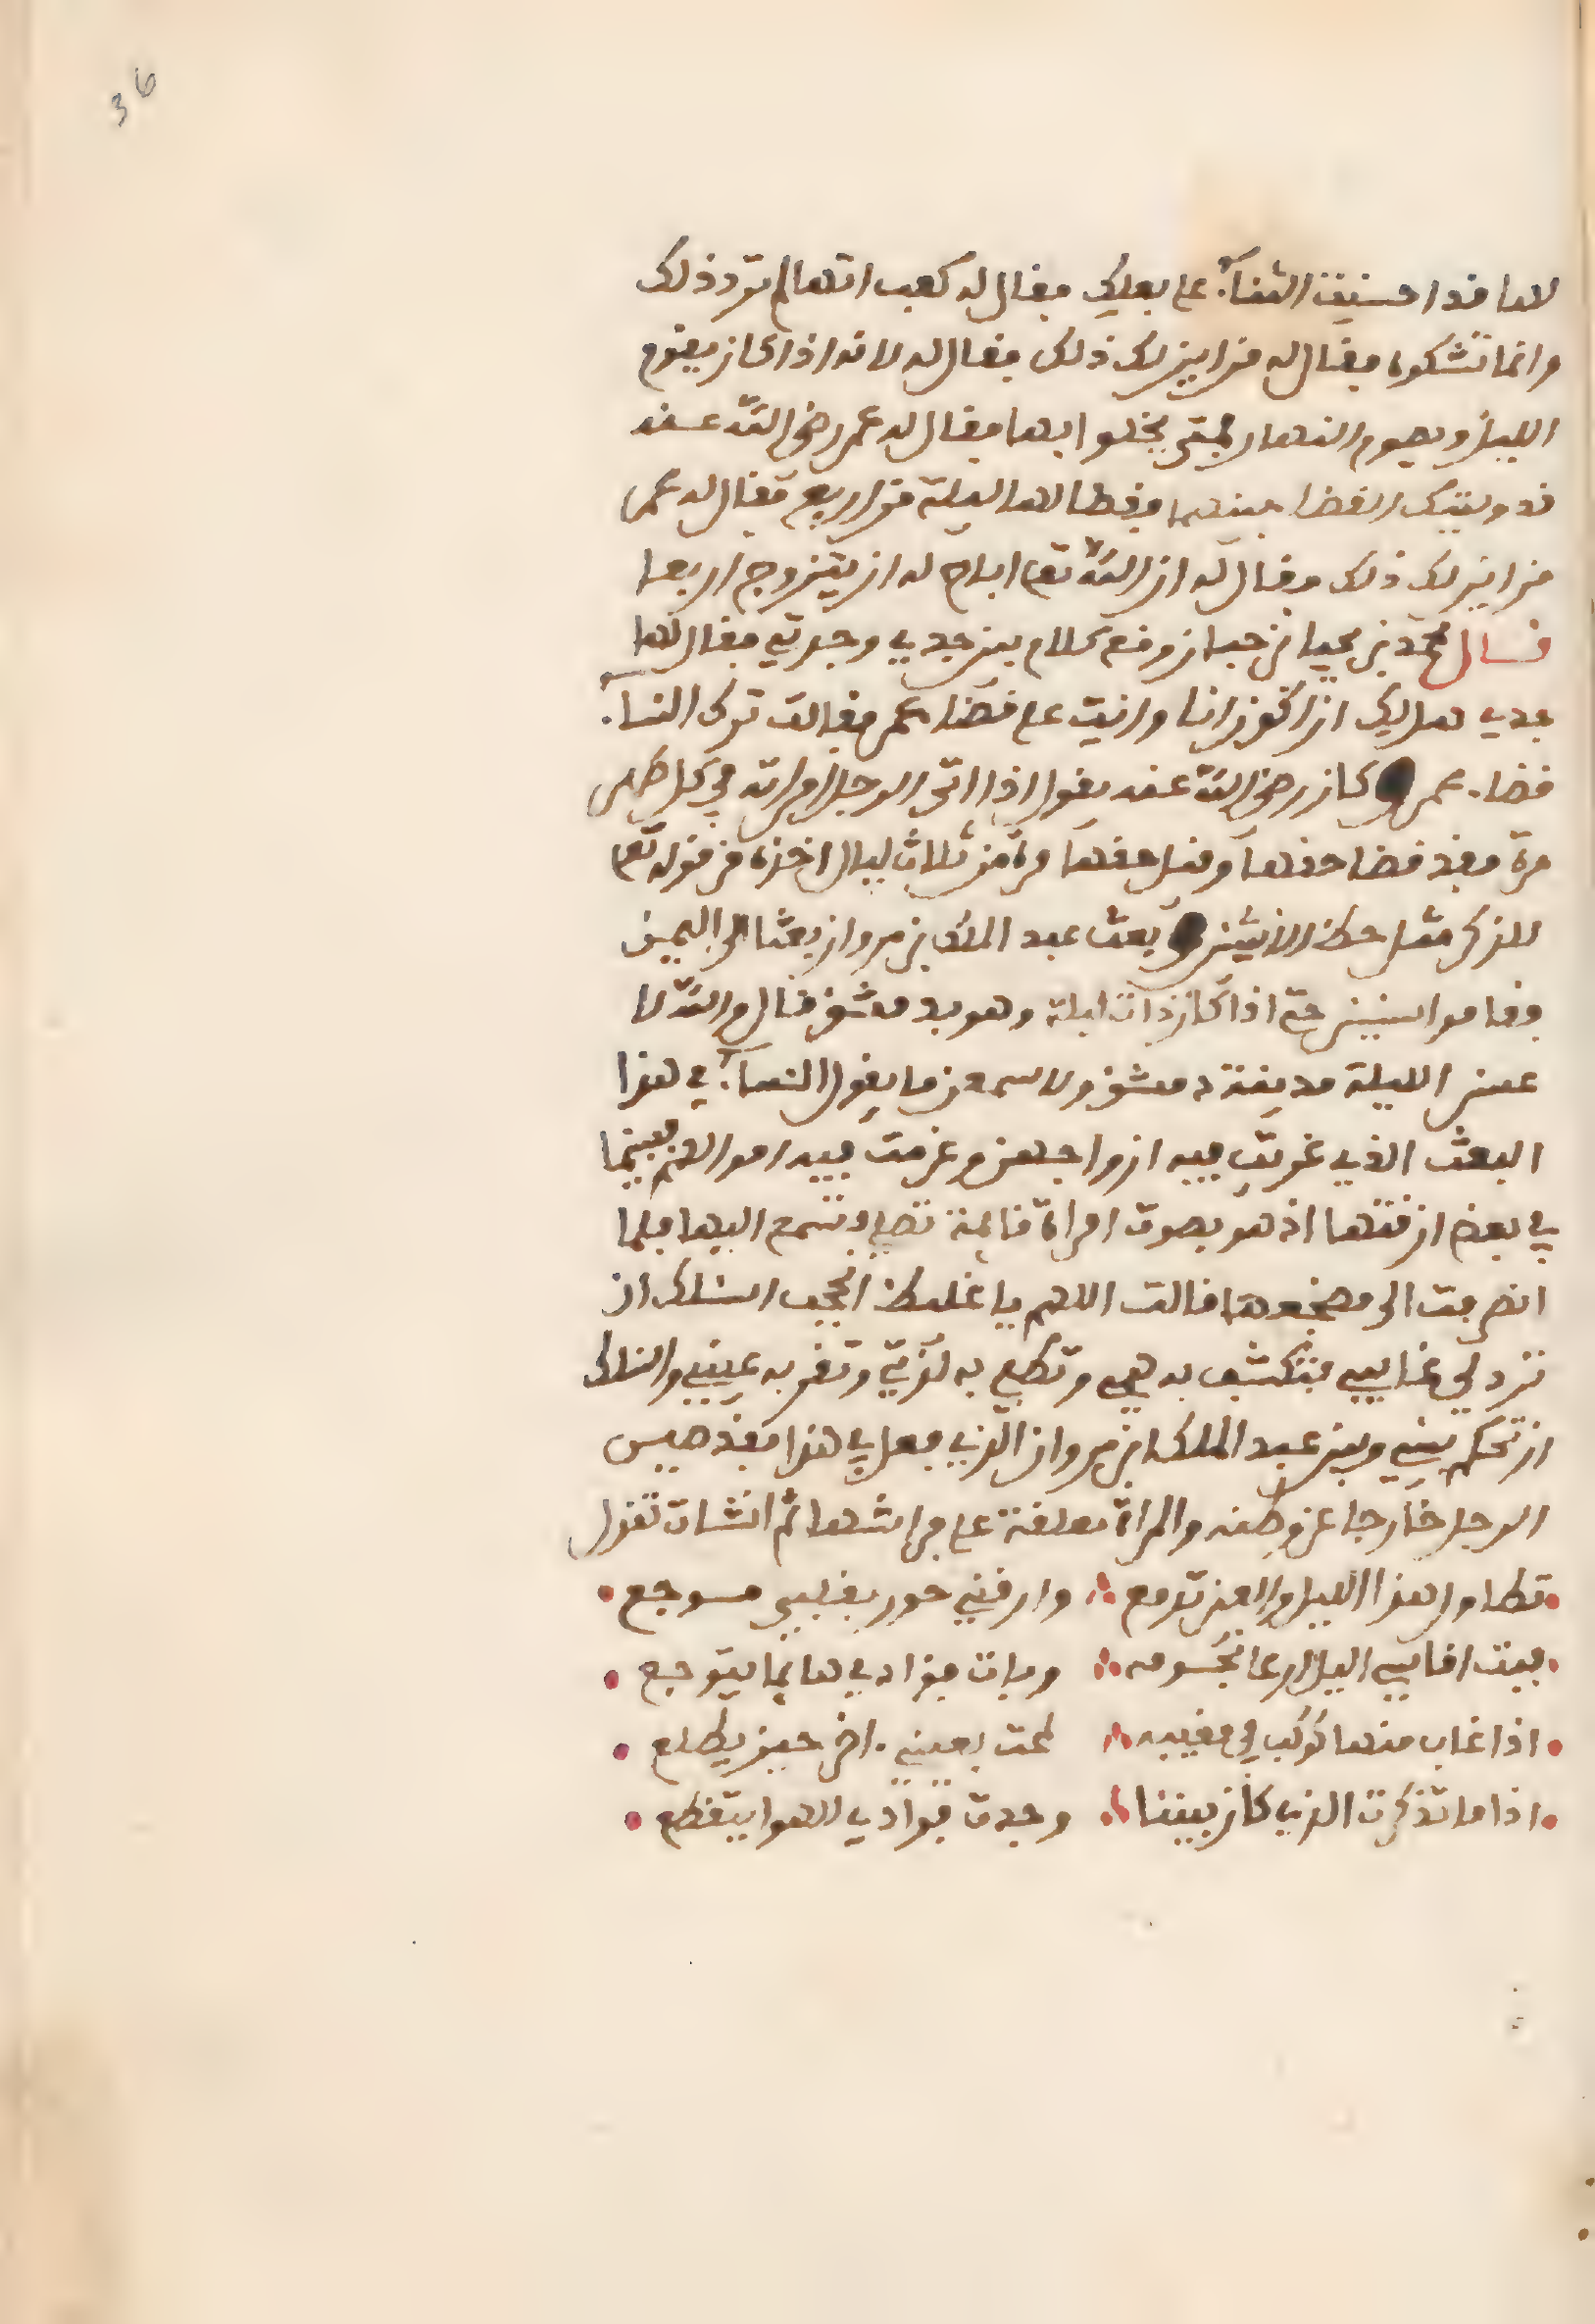 36
لها قد احسنت الثنآء على بعلك فقال له كعب انها لم ترد ذلك
وانما تشكوه فقال له من اين لك ذلك فقال له لانه اذا كان يقوم
الليل ويصوم النهار فمتى يخلوا بها فقال له عمر رضي الله عنه
قد وليتك القضا بينهما فقضا لها ليلة من اربع فقال له عمر
من اين لك ذلك فقال له ان الله تعا اباح له ان يتزوج اربعا
قال محمد بن يحيا بن حبان وقع كلام بين جدي وجدتي فقال لها
جدي هل لك ان اكون انا وانت على قضا عمر فقالت ترك النسآء
قضاء عمر وكان رضي الله عنه يقول اذا اتى الرجل امراته في كل طهر
مرة فقد قضا حقها وقيل حقها مرة من ثلاث ليال اخذه من قوله تعا
للذكر مثل حظ الانثيين وبعث عبد الملك بن مروان بعثا الى اليمن
فقاموا سنين حتى اذا كان ذات ليلة وهو بدمشق قال والله لا
عسن الليلة مدينة دمشق ولاسمعن ما يقول النسآء في هذا
البعث الذي غربت فيه ازواجهن وغرمت فيه اموالهم فبينما
في بعض ازقتها اذ هو بصوت امراة قائمة تصلي وتسمع اليها فلما
انصرفت الى مضجعها قالت اللهم يا غليظ الحجب اسئلك ان
ترد لي غايبي فتكشف به همي وتطفي به لوعتي وتقر به عيني واسئلك
ان تحكم بيني وبين عبد الملك ابن مروان الذي فعل بي هذا فقد صير
الرجل خارجا عن وطنه والمراة معلقة على فراشها ثم انشات تقول
تطاول هذا الليل والعين تدمع وارقني حور بقلبي موجع
فبت اقاسي اليل ارعا نجومه وبات فؤادي هائما يتوجع
اذا غاب منها كوكب في مغيبه لمحت بعيني اخر حين يطلع
اذا ما تذكرت الذي كان بيننا وجدت فؤادي للهوا يتقطع